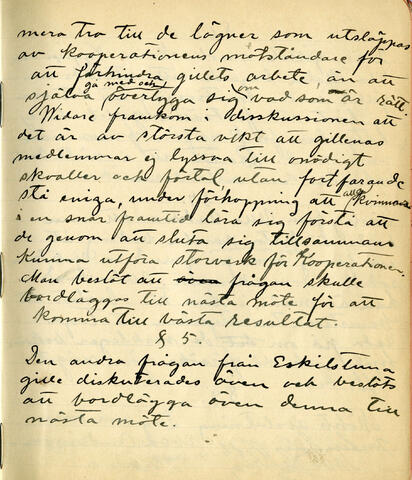 mera tro till de lögner som utsläppas
av kooperationens motståndare för
att förhindra gillets arbete, än att
gå med och om
själva övertyga sig vad som är rätt.
Widare framkom i disskussionen att
det är av största vikt att gillenas
medlemmar ej lyssna till onödigt
skvaller och förtal, utan fortfarande
stå eniga, under förhoppning att alla kvinnorna
i en snar framtid lära sig förstå att
de genom att sluta sig tillsamman
kunna utföra storverk för Kooperationen.
Man beslöt att frågan skulle
bordläggas till nästa möte för att
komma till bästa resultat.
§ 5.
Den andra frågan från Eskilstuna
gille diskuterades även och beslöts
att bordlägga även denna till
nästa möte.